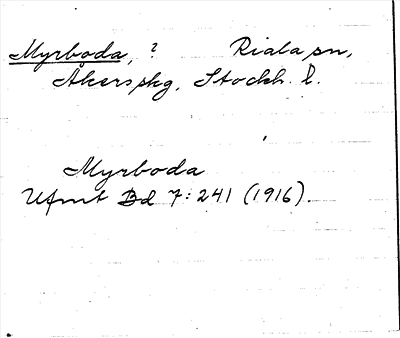 Myrboda, ? Riala sn,
Åkers skg, Stockh. l.
Myrboda
Ufmt Bd 7: 241 (1916).